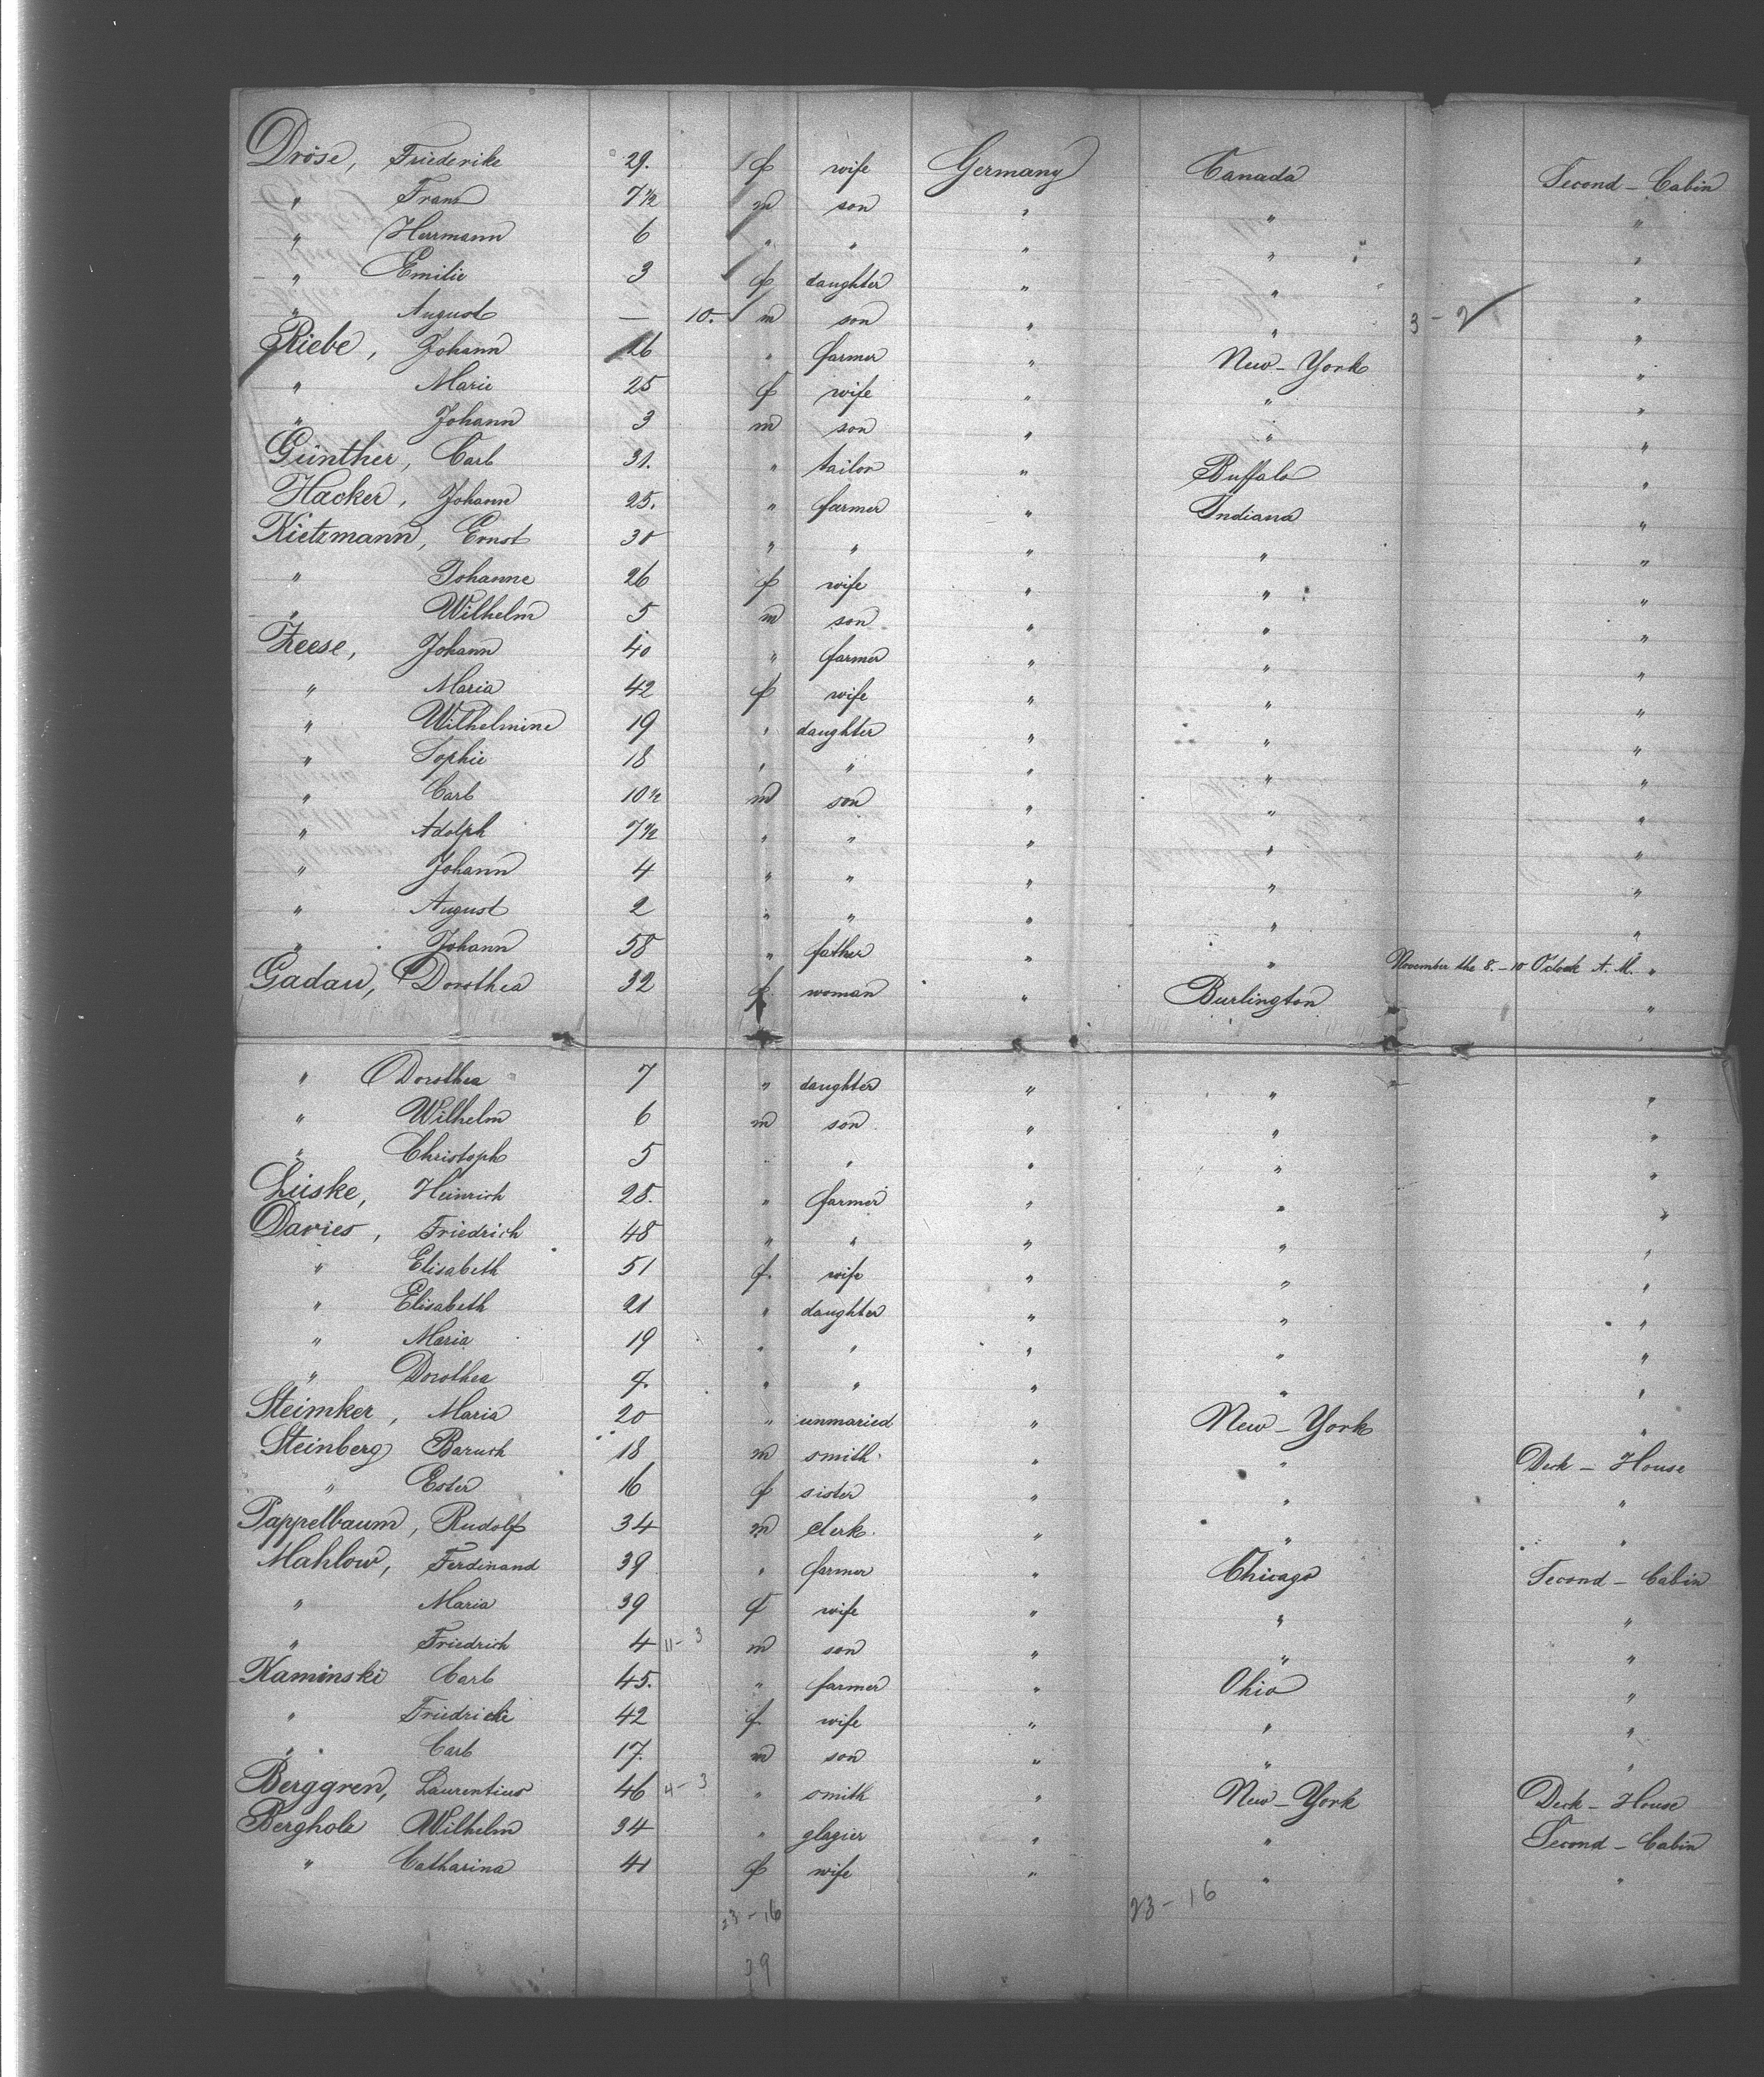 Dröse, Friederike 29. f wife Germany Canada Second - Cabin
" Franz 7 1/2 m son " " "
" Herrmann 6 " " " " "
" Emilie 3 f daughter " " "
" August — 10. m son " " 3 - 2 "
Riebe, Johann 26 " farmer " New-York "
" Marie 25 f wife " " "
" Johann 3 m son " " "
Günther, Carl 31. " tailor " Buffalo "
Hacker, Johann 25. " farmer " Indiana "
Kietzmann, Ernst 30 " " " " "
" Johanne 26 f wife " " "
" Wilhelm 5 m son " " "
Zeese, Johann 40 " farmer " " "
" Maria 42 f wife " " "
" Wilhelmine 19 " daughter " " "
" Sophie 18 " " " " "
" Carl 10 1/2 m son " " "
" Adolph 7 1/2 " " " " "
" Johann 4 " " " " "
" August 2 " " " " "
" Johann 58 " father " " November the 8. - 10 O'clock A. M. "
Gadau, Dorothea 32 f. woman " Burlington "
" Dorothea 7 " daughter " " "
" Wilhelm 6 m son " " "
" Christoph 5 " " " "
Lüske, Heinrich 25. " farmer " " "
Davies, Friedrich 48 " " " " "
" Elisabeth 51 f. wife " " "
" Elisabeth 21 " daughter " " "
" Maria 19 " " " " "
" Dorothea 7. " " " " "
Steimker, Maria 20 " unmaried " New-York "
Steinberg Baruch 18 m smith. " " Deck - House
" Ester 16 f sister " " "
Pappelbaum, Rudolf 34 m clerk. " " "
Mahlow, Ferdinand 39 " farmer " Chicago Second - Cabin
" Maria 39 f wife " " "
" Friedrich 4 11 - 3 m son " " "
Kaminski Carl 45. " farmer " Ohio "
" Friedricke 42 f. wife " " "
" Carl 17. m son " " "
Berggren, Laurentius 46 4 - 3 " smith " New-York Deck - House
Bergholz Wilhelm 34 " glazier " " Second - Cabin
" Catharina 41 f wife " " "
23 - 16 23 - 16
39